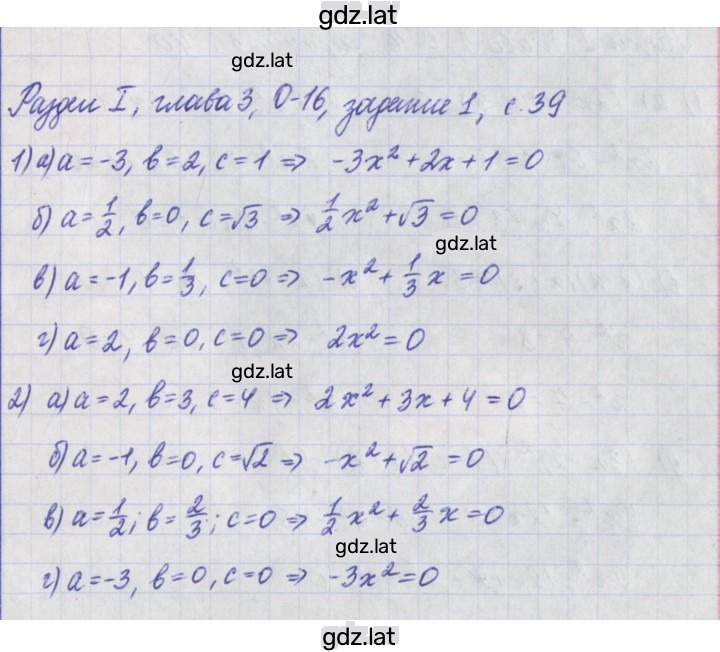 gdz.lat
gdz.lat
Раздел I, глава 3, О-16, задание 1, с. 39
1) а) a = -3, b = 2, c = 1 ⇒ -3x² + 2x + 1 = 0
б) a = 1/2, b = 0, c = √3 ⇒ 1/2 x² + √3 = 0
gdz.lat
в) a = -1, b = 1/3, c = 0 ⇒ -x² + 1/3 x = 0
г) a = 2, b = 0, c = 0 ⇒ 2x² = 0
gdz.lat
2) а) a = 2, b = 3, c = 4 ⇒ 2x² + 3x + 4 = 0
б) a = -1, b = 0, c = √2 ⇒ -x² + √2 = 0
в) a = 1/2; b = 2/3; c = 0 ⇒ 1/2 x² + 2/3 x = 0
gdz.lat
г) a = -3, b = 0, c = 0 ⇒ -3x² = 0
gdz.lat